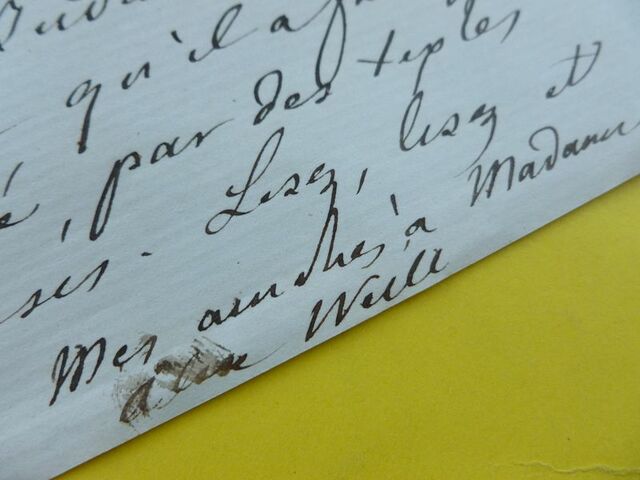 qu'il a
é, par des textes
ses. Lisez, lisez et
Mes amitiés à Madame
Alex Weill